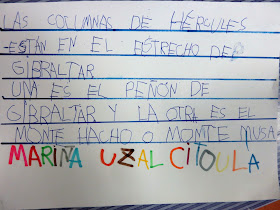 LAS COLUMNAS DE HÉRCULES
ESTÁN EN EL ESTRECHO DE
GIBRALTAR
UNA ES EL PEÑÓN DE
GIBRALTAR Y LA OTRA ES EL
MONTE HACHO O MONTE MUSA
MARIÑA UZAL CITOULA